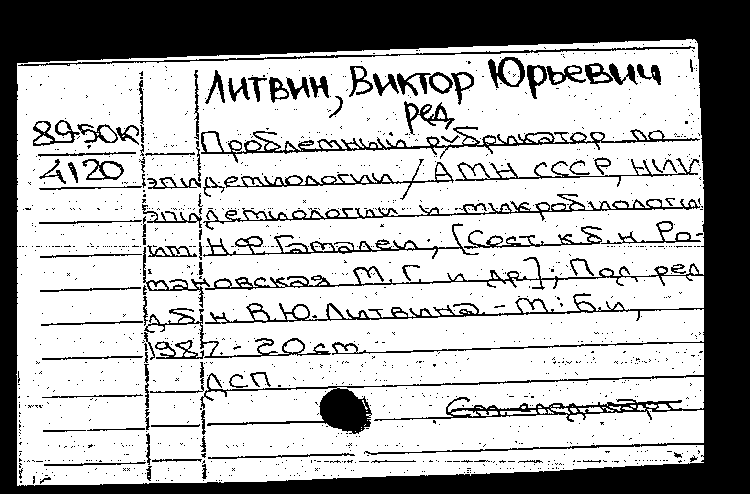 Литвин, Виктор Юрьевич
ред.
89-50к
4120
Проблемный рубрикатор по
эпидемиологии / АМН СССР, НИИ
эпидемиологии и микробиологии
им. Н.Ф Гамалеи; [Сост. к.б.н. Ро-
мановская М.Г. и др.]; Под ред
д.б.н. В.Ю. Литвина. - М.: Б.и,
1987. - 20 см.
ДСП.
См. след. карт.